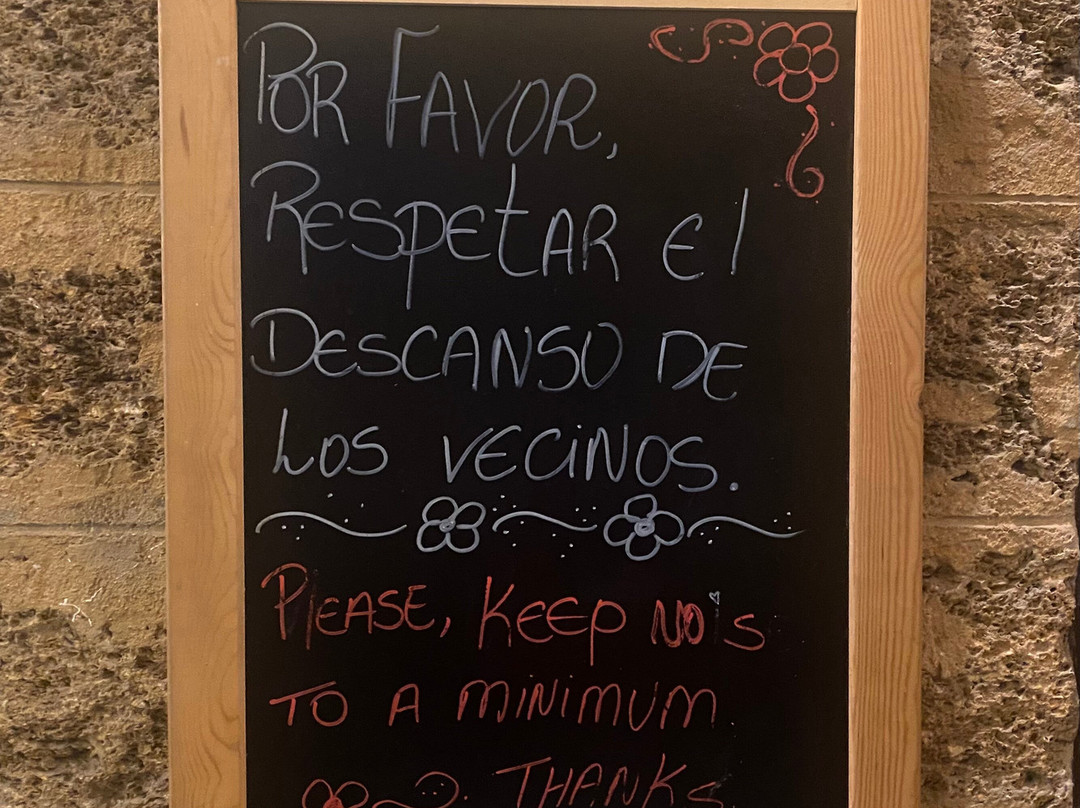 POR FAVOR,
RESPETAR El
DESCANSO DE
LOS VECINOS.
PlEASE, KEEP NOiS
TO A MiNiMUM.
THANKS.